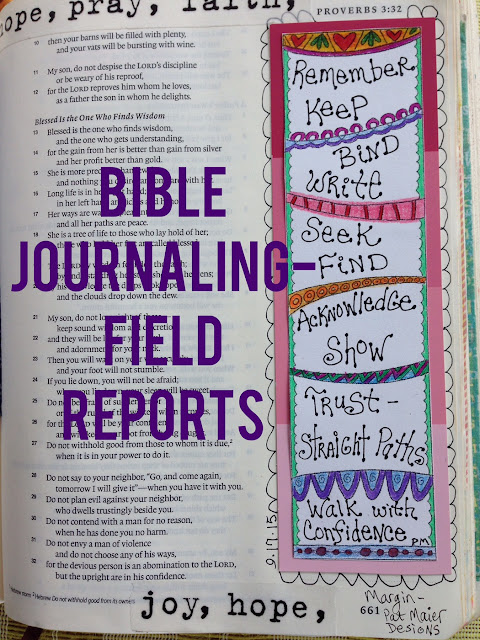 ope, pray, faith,
PROVERBS 3:32
10 then your barns will be filled with plenty,
and your vats will be bursting with wine.
11 My son, do not despise the LORD's discipline
or be weary of his reproof,
12 for the LORD reproves him whom he loves,
as a father the son in whom he delights.
Blessed Is the One Who Finds Wisdom
13 Blessed is the one who finds wisdom,
and the one who gets understanding,
14 for the gain from her is better than gain from silver
and her profit better than gold.
15 She is more
and nothing you with her.
16 Long life is in her
in her left
17 Her ways are ways
and all her paths are peace.
18 She is a tree of life to those who lay hold of her;
those who called blessed.
and the clouds drop down the dew.
21 My son, do not lose of these
keep sound wisdom and discretion,
22 and they will be
and adornment for your neck.
23 Then you will walk on your
and your foot will not stumble.
24 If you lie down, you will not be afraid;
sleep will be sweet.
25 Do not
26 for the
27 Do not withhold good from those to whom it is due,²
when it is in your power to do it.
28 Do not say to your neighbor, "Go, and come again,
tomorrow I will give it"—when you have it with you.
29 Do not plan evil against your neighbor,
who dwells trustingly beside you.
30 Do not contend with a man for no reason,
when he has done you no harm.
31 Do not envy a man of violence
and do not choose any of his ways,
32 for the devious person is an abomination to the LORD,
but the upright are in his confidence.
² Hebrew Do not withhold good from its owners
BIBLE
JOURNALING-
FIELD
REPORTS
Remember
Keep
Bind
Write
Seek
Find
Acknowledge
Show
Trust -
Straight Paths
Walk with
Confidence
PM
9.17.15
joy, hope,
661
Margin-
Pat Maier
Designs